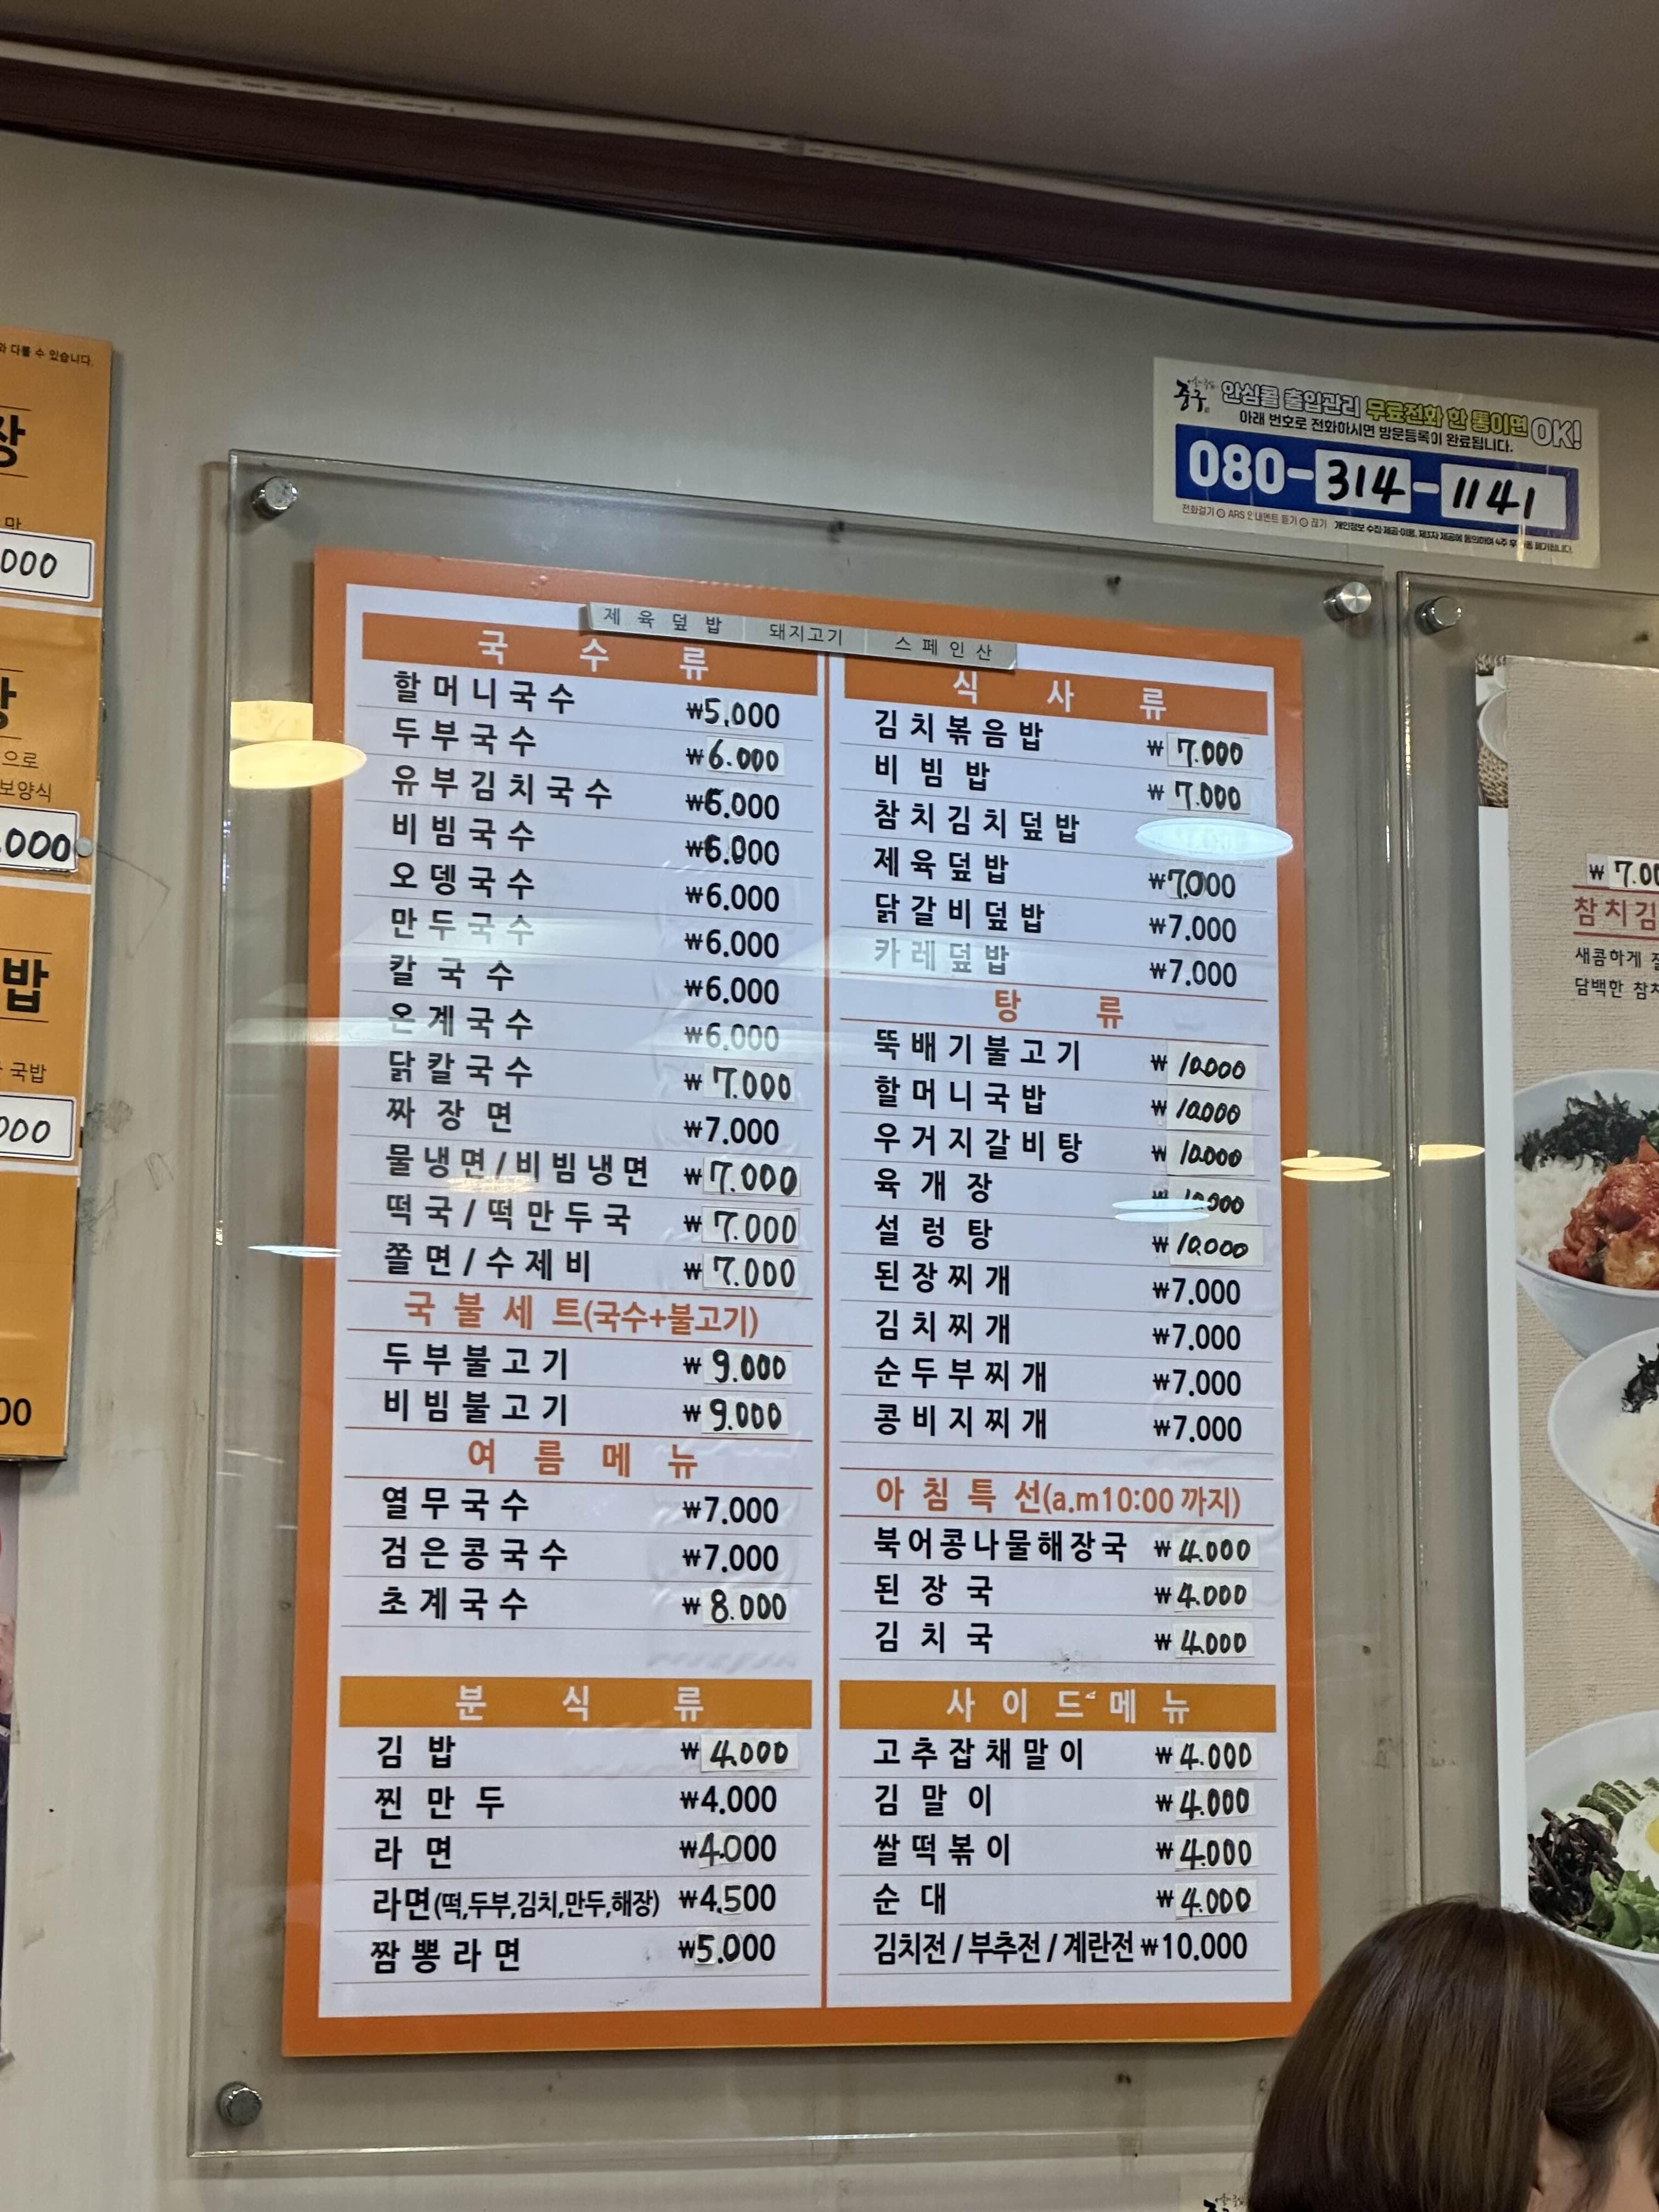 와 다를 수 있습니다.
장
맛
000
으로
보양식
000
밥
국밥
000
00
중구
안심콜 출입관리 무료전화 한 통이면 OK!
아래 번호로 전화하시면 방문등록이 완료됩니다.
080-314-1141
전화걸기 ARS 안내멘트 듣기 끊기
제육덮밥 돼지고기 스페인산
국수류
할머니국수 ₩5.000
두부국수 ₩6.000
유부김치국수 ₩6.000
비빔국수 ₩6.000
오뎅국수 ₩6.000
만두국수 ₩6.000
칼국수 ₩6.000
온계국수 ₩6.000
닭칼국수 ₩7.000
짜장면 ₩7.000
물냉면/비빔냉면 ₩7.000
떡국/떡만두국 ₩7.000
쫄면/수제비 ₩7.000
국불세트(국수+불고기)
두부불고기 ₩9.000
비빔불고기 ₩9.000
여름메뉴
열무국수 ₩7.000
검은콩국수 ₩7.000
초계국수 ₩8.000
분식류
김밥 ₩4.000
찐만두 ₩4.000
라면 ₩4.000
라면(떡,두부,김치,만두,해장) ₩4.500
짬뽕라면 ₩5.000
식사류
김치볶음밥 ₩7.000
비빔밥 ₩7.000
참치김치덮밥
제육덮밥 ₩7.000
닭갈비덮밥 ₩7.000
카레덮밥 ₩7.000
탕류
뚝배기불고기 ₩10.000
할머니국밥 ₩10.000
우거지갈비탕 ₩10.000
육개장 ₩10.000
설렁탕 ₩10.000
된장찌개 ₩7.000
김치찌개 ₩7.000
순두부찌개 ₩7.000
콩비지찌개 ₩7.000
아침특선(a.m10:00 까지)
북어콩나물해장국 ₩4.000
된장국 ₩4.000
김치국 ₩4.000
사이드메뉴
고추잡채말이 ₩4.000
김말이 ₩4.000
쌀떡볶이 ₩4.000
순대 ₩4.000
김치전/부추전/계란전 ₩10.000
₩7.00
참치김
새콤하게
담백한 참치